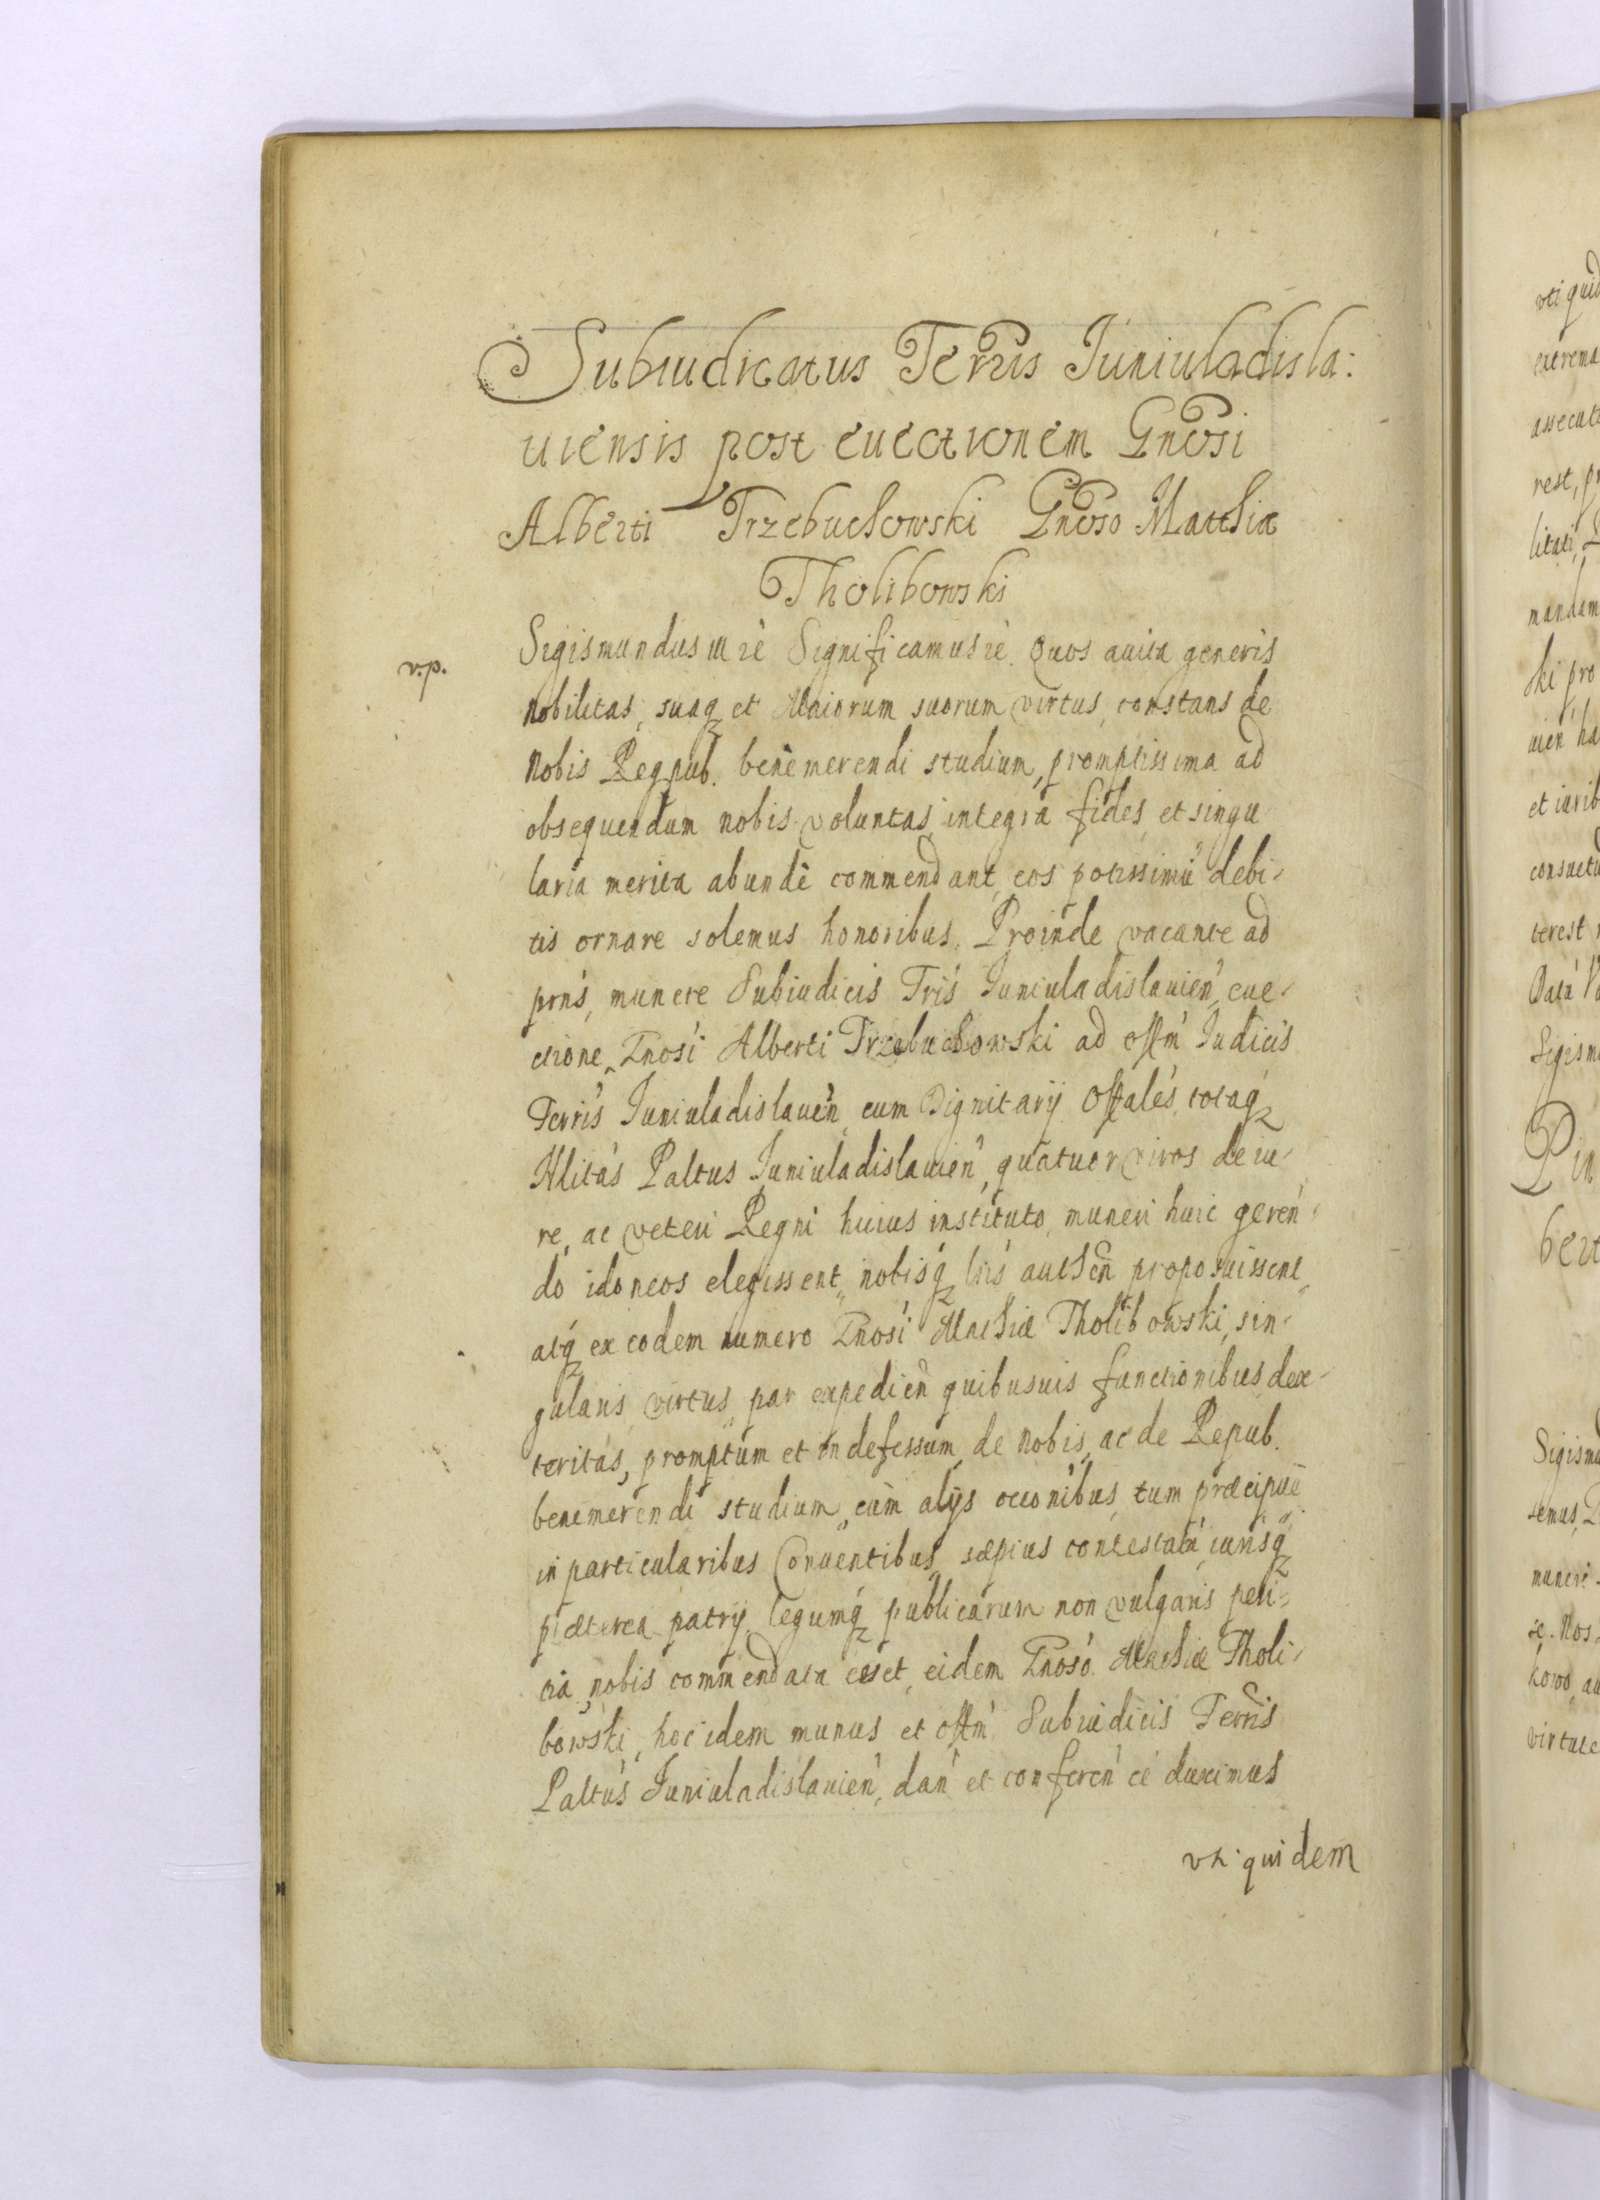 Subiudicatus Terris Iuniuladisla:
uiensis post euectionem Gnosi
Alberti Trzebuchowski Gnoso Matthiæ
Tholibowski
v.p.
Sigismundus III rê Significamus rê. Quos auita generis
nobilitas, suaq et Maiorum suorum virtus, constans de
nobis Reqpub. benemerendi studium, promptissima ad
obsequendum nobis voluntas, integra fides, et singu
laria merita abundè commendant, eos potissimũ debi-
tis ornare solemus honoribus. Proinde vacante ad
prns, munere Subiudicis Tris Iuniuladislauien, eue-
ctione Gnosi Alberti Trzebuchowski ad offm Iudicis
Terris Iuniuladislauen, cum Dignitarij Offales, totaq
Nlitas Paltus Iuniuladislauien, quatuor viros de iu-
re, ac veteri Regni huius instituto, muneri huic geren-
do idoneos elegissent, nobisq lris authen proposuissent,
atq ex eodem numero Gnosi Mathiæ Tholibowski, sin-
gularis virtus, par expedien quibusuis functionibus dex-
teritas, promptum et indefessum, de nobis, ac de Repub.
benemerendi studium, cùm alijs occonibus, tum præcipuè
in particularibus Conuentibus, sæpius contestatũ, iurisq
præterea patrij legumq publicarum non vulgaris peri-
tia nobis commendata esset, eidem Gnoso Mathiæ Tholi-
bowski, hoc idem munus et offm Subiudicis Terris
Paltus Iuniuladislauien, dan et conferen eê duximus
vti quidem